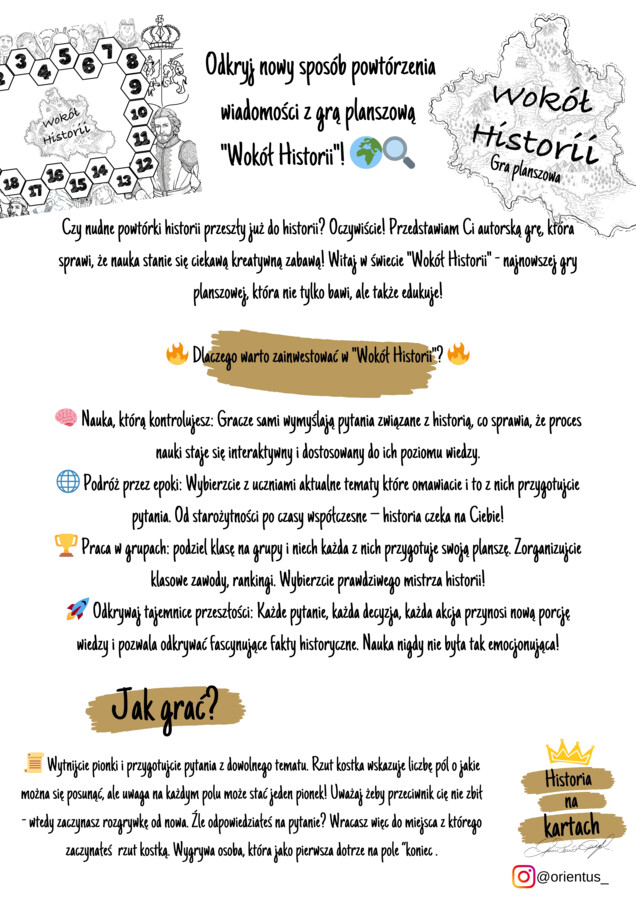 Odkryj nowy sposób powtórzenia
wiadomości z grą planszową
"Wokół Historii"!
2 3 4 5 6 7 8
9
10
11
12
13
14
15
16
17
18
wokół
Historii
Wokół
Historii
Gra planszowa
Czy nudne powtórki historii przeszły już do historii? Oczywiście! Przedstawiam Ci autorską grę, która
sprawi, że nauka stanie się ciekawą kreatywną zabawą! Witaj w świecie "Wokół Historii" - najnowszej gry
planszowej, która nie tylko bawi, ale także edukuje!
Dlaczego warto zainwestować w "Wokół Historii"?
Nauka, którą kontrolujesz: Gracze sami wymyślają pytania związane z historią, co sprawia, że proces
nauki staje się interaktywny i dostosowany do ich poziomu wiedzy.
Podróż przez epoki: Wybierzcie z uczniami aktualne tematy które omawiacie i to z nich przygotujcie
pytania. Od starożytności po czasy współczesne – historia czeka na Ciebie!
Praca w grupach: podziel klasę na grupy i niech każda z nich przygotuje swoją planszę. Zorganizujcie
klasowe zawody, rankingi. Wybierzcie prawdziwego mistrza historii!
Odkrywaj tajemnice przeszłości: Każde pytanie, każda decyzja, każda akcja przynosi nową porcję
wiedzy i pozwala odkrywać fascynujące fakty historyczne. Nauka nigdy nie była tak emocjonująca!
Jak grać?
Wytnijcie pionki i przygotujcie pytania z dowolnego tematu. Rzut kostka wskazuje liczbę pól o jakie
można się posunąć, ale uwaga na każdym polu może stać jeden pionek! Uważaj żeby przeciwnik cię nie zbił
- wtedy zaczynasz rozgrywkę od nowa. Źle odpowiedziałeś na pytanie? Wracasz więc do miejsca z którego
zaczynałeś rzut kostką. Wygrywa osoba, która jako pierwsza dotrze na pole "koniec .
Historia
na
kartach
@orientus_